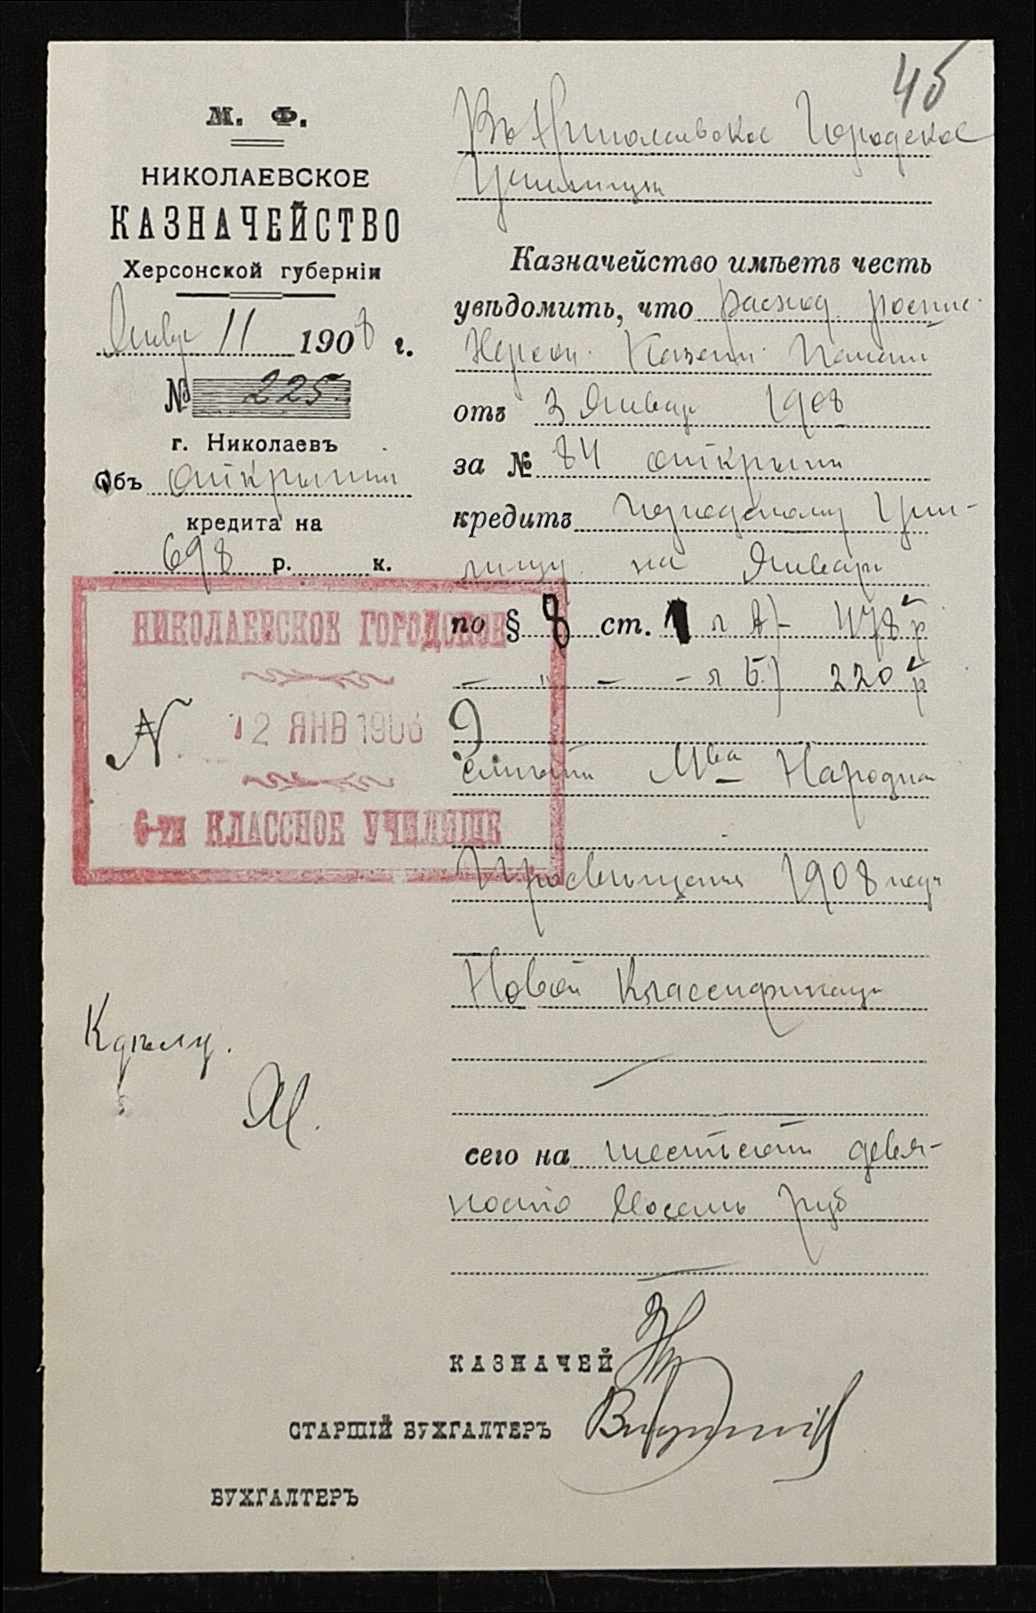 45
М. Ф.
НИКОЛАЕВСКОЕ
КАЗНАЧЕЙСТВО
Херсонской губерніи
Январ 11 1908 г.
№ 225
г. Николаевъ
Объ открытии
кредита на
698 р. к.
НИКОЛАЕВСКОЕ ГОРОДСКОЕ
N 12 ЯНВ 1908 9
6-ти КЛАССНОЕ УЧИЛИЩЕ
К дѣлу.
Въ Николаевское Городское
Училище
Казначейство имѣетъ честь
увѣдомить, что расход роспис.
Херсон. Казен. Палаты
отъ 3 Январ 1908
за № 84 открыти
кредитъ Городскому Учи-
лищу на Январь
по § 8 ст. 1 л А) - 478 р
— " — - л Б) 220 р
смѣты Мва Народна
Просвещения 1908 
Новой Классификаци
сего на шестьсот девя-
носто восемь руб
КАЗНАЧЕЙ
СТАРШІЙ БУХГАЛТЕРЪ
БУХГАЛТЕРЪ